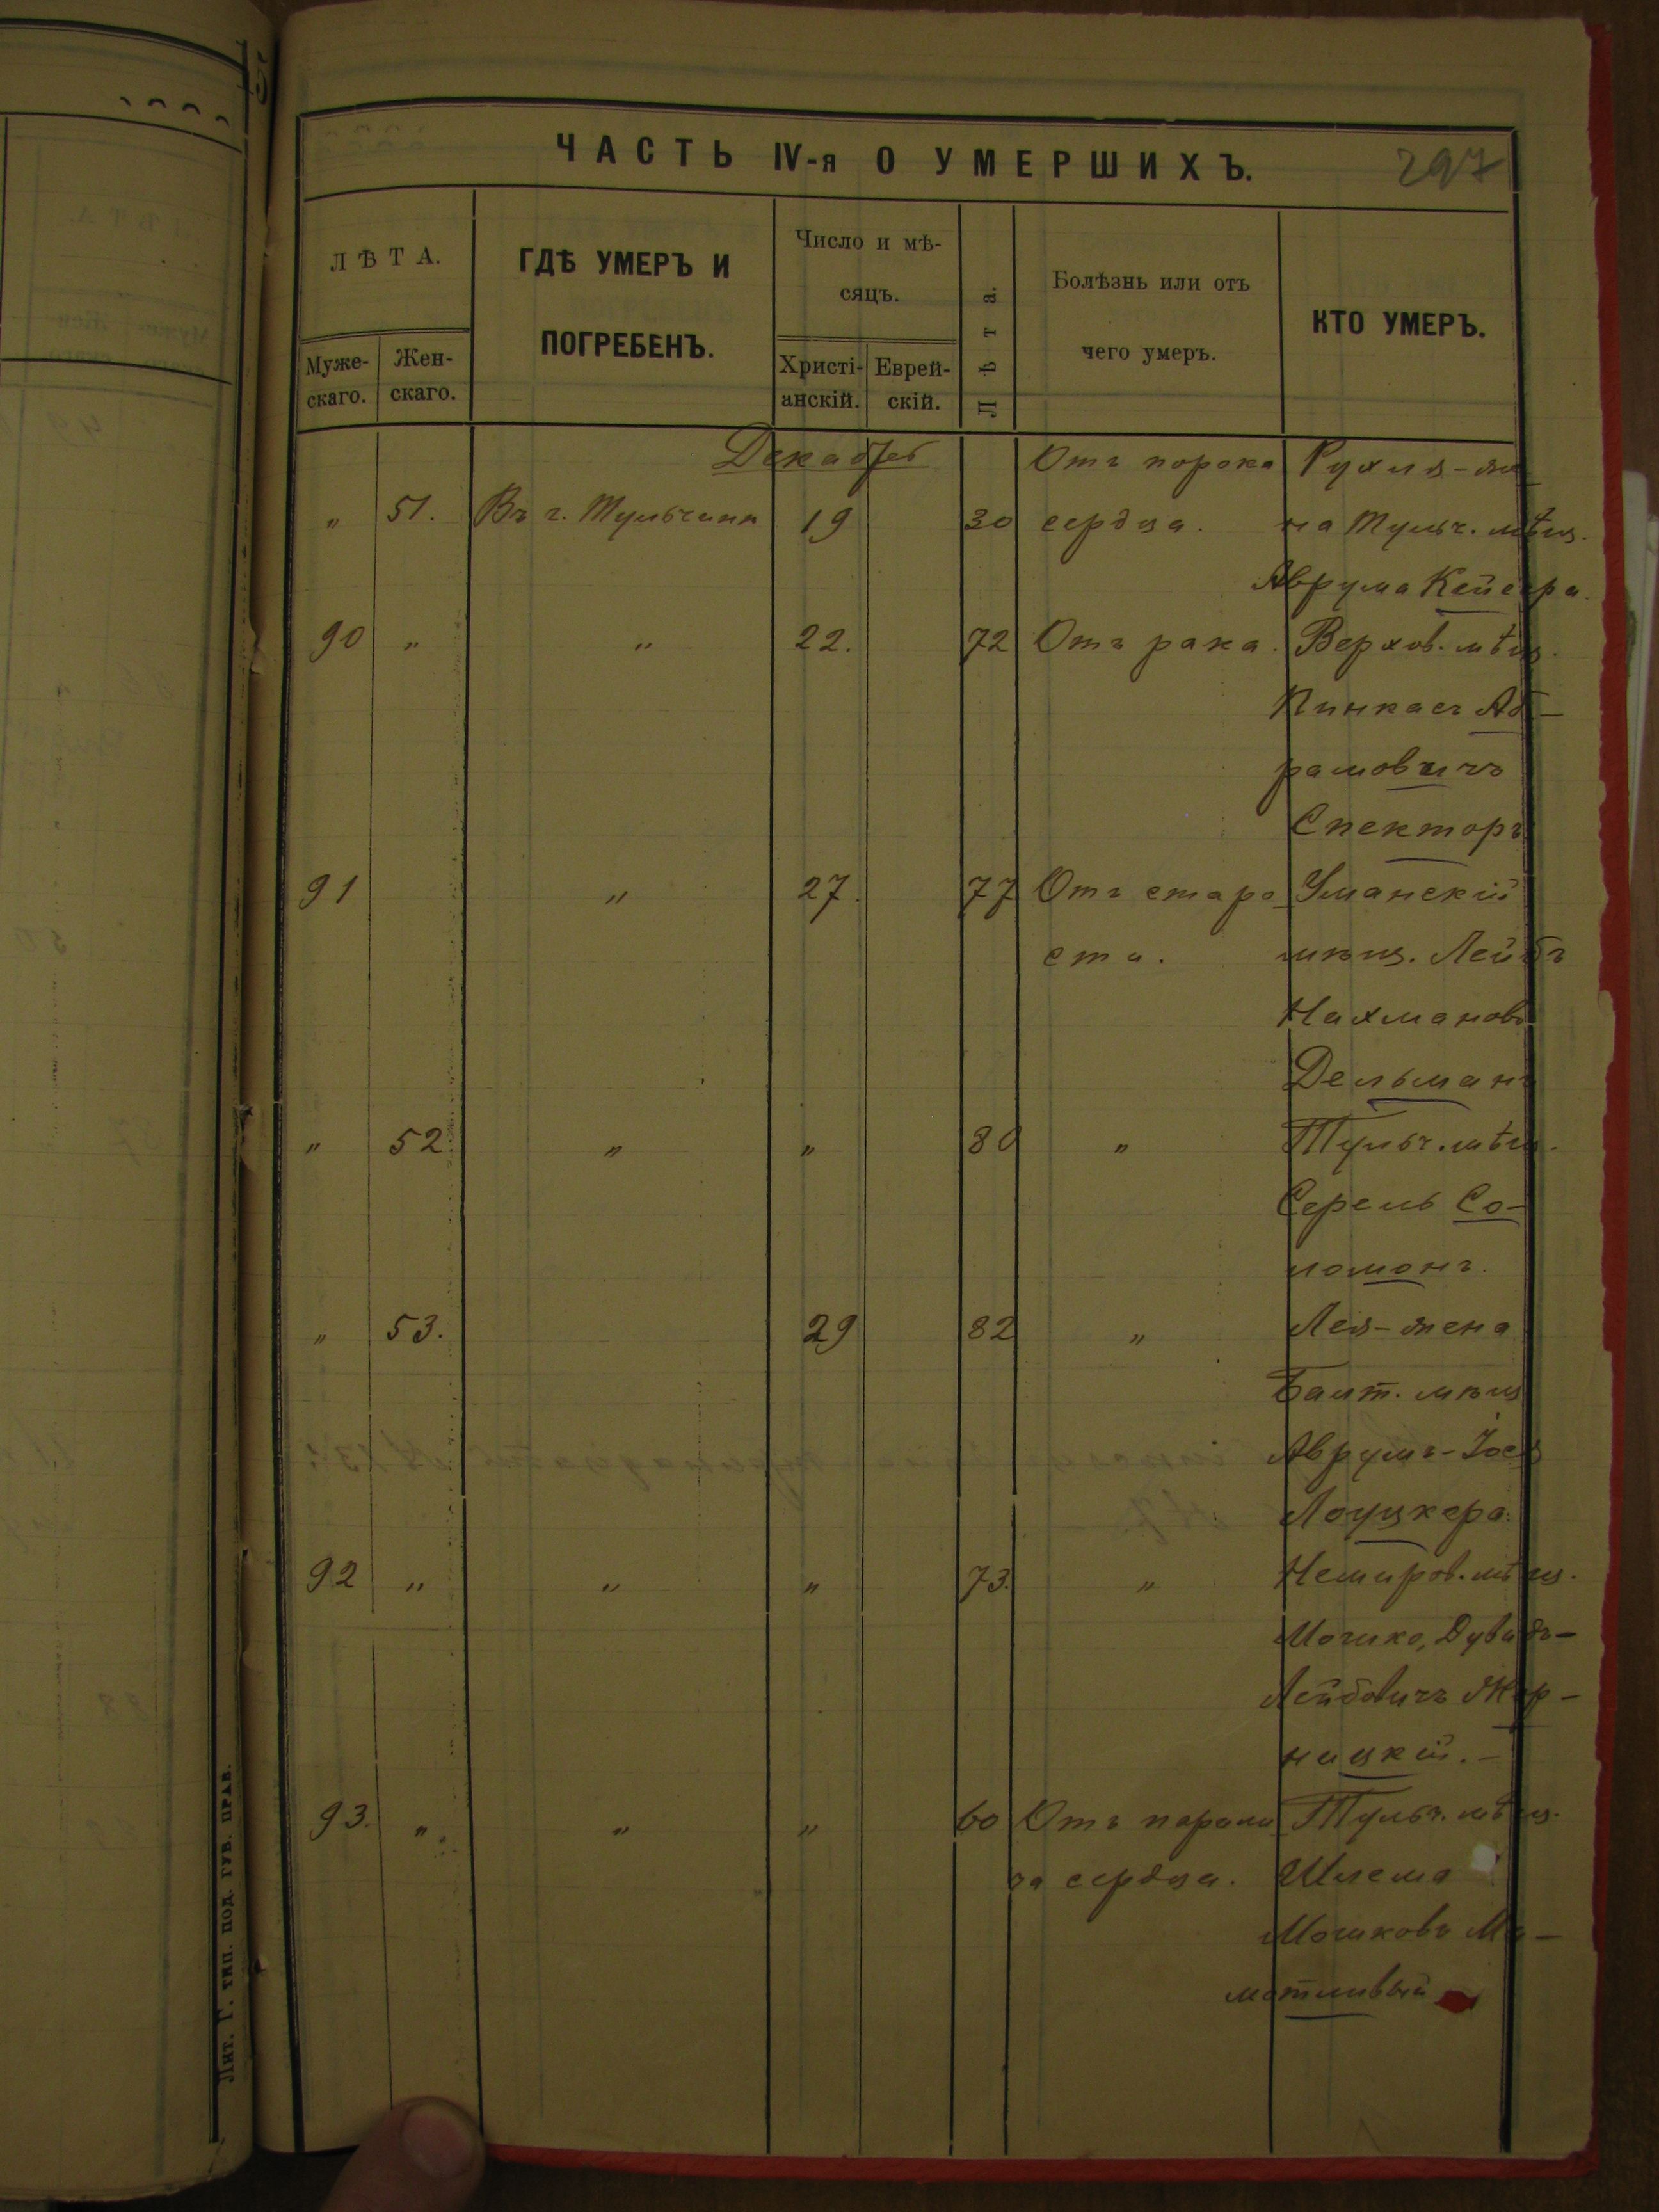 ЧАСТЬ IV-я О УМЕРШИХЪ.
297
ЛѢТА.
Муже-
скаго.
Жен-
скаго.
ГДѢ УМЕРЪ И
ПОГРЕБЕНЪ.
Число и мѣ-
сяцъ.
Христі-
анскій.
Еврей-
скій.
Лѣта.
Болѣзнь или отъ
чего умеръ.
КТО УМЕРЪ.
Декабрь Отъ порока Рухля-же
" 51. Въ г. Тульчинѣ 19 30 сердца. на Тульч. мѣщ.
Аврума Кейсера.
90 " " 22. 72 Отъ рака. Верхов. мѣщ.
Пинкасъ Аб-
рамовичъ
Спекторъ
91 " 27. 77 Отъ старо Уманскій
сти. мѣщ. Лейбъ
Нахмановъ
Дельманъ
" 52 " " 80 " Тульч. мѣщ.
Серель Со-
ломонъ.
" 53. 29 82 " Лея-жена
Балт. мѣщ
Аврумъ-Іося
Лоуцкера.
92 " " " 73. " Немиров. мѣщ.
Мошко, Дувидъ-
Лейбовичъ Жор-
ницкій.-
93. " " " 60 Отъ парали Тульч. мѣщ.
ча сердца. Шлема
Мошковъ Ма-
мотливый
Лит. Г. тип. под. губ. прав.